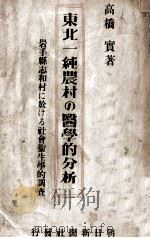 高橋 實著
東北一純農村の醫學的分析
岩手縣志和村に於ける社會衞生學的調査
朝日新聞社刊行